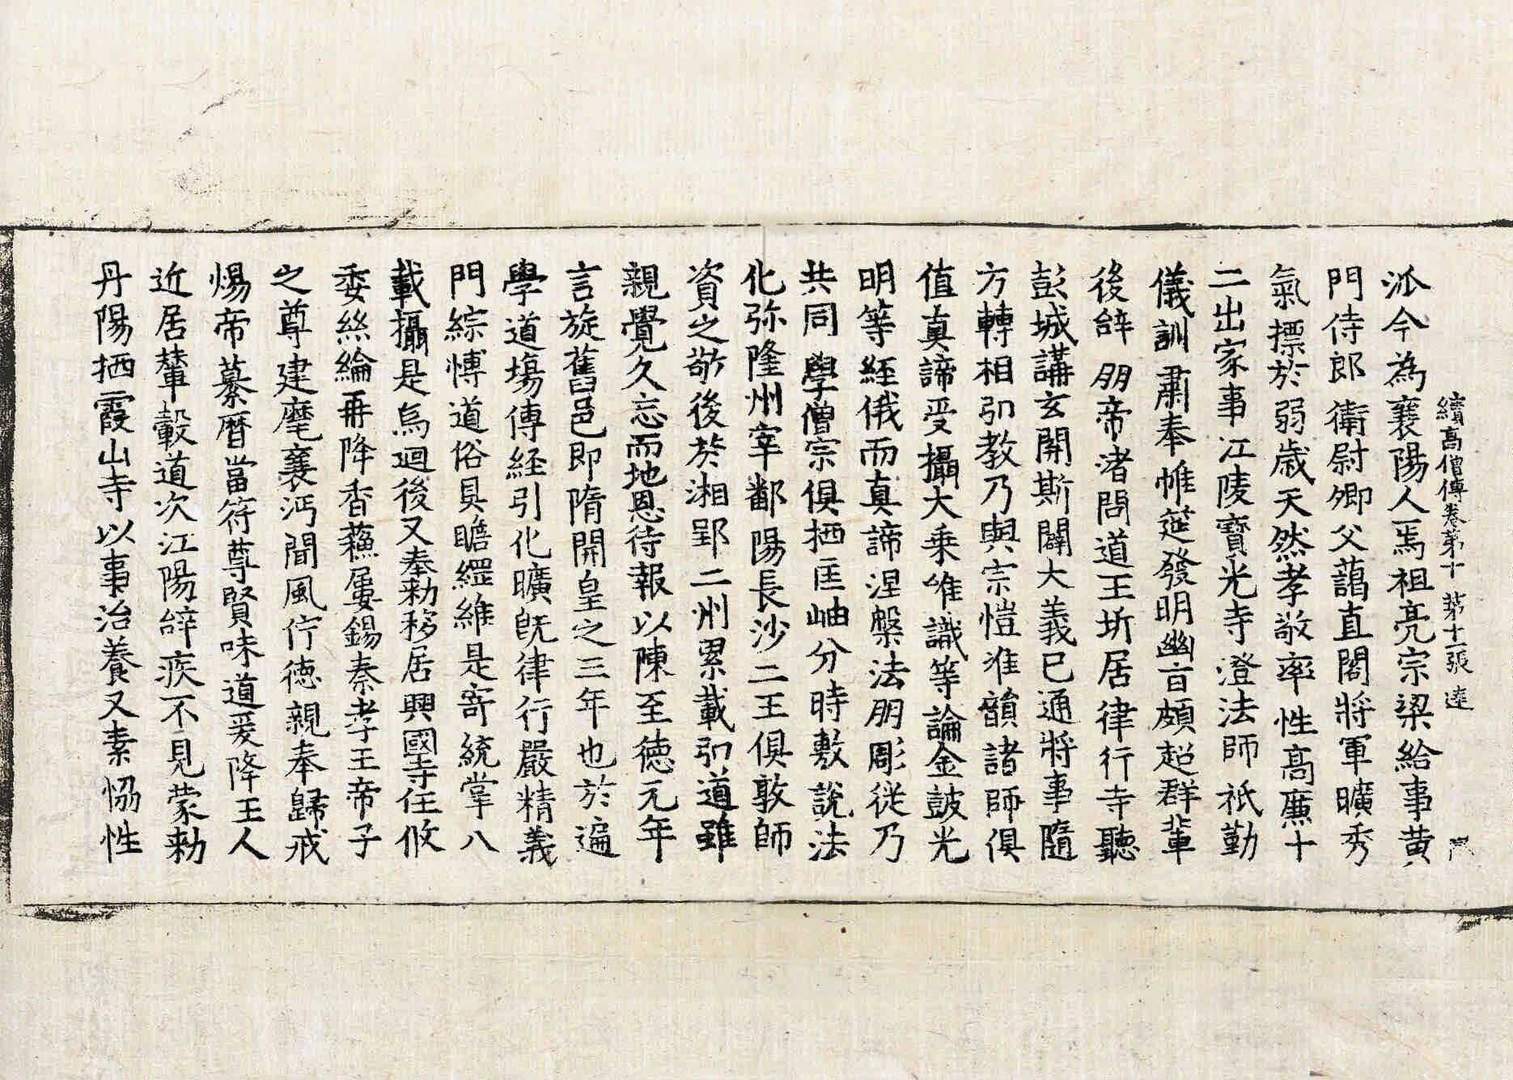 續高僧傳卷第十 第十二張 達
派今為襄陽人焉祖亮宗梁給事黄
門侍郎衛尉卿父藹直閤將軍曠秀
氣摽於弱歳天然孝敬率性高廉十
二出家事江陵寶光寺澄法師祇勤
儀訓肅奉帷筵發明幽旨頗超群輩
後辝朋帝渚問道王圻居律行寺聽
彭城講玄開斯闢大義已通將事隨
方轉相䂖教乃與宗愷准韻諸師俱
值真諦受攝大乗唯識等論金鼓光
明等経俄而真諦涅槃法朋彫從乃
共同學僧宗俱栖匡岫分時敷說法
化弥隆州宰鄱陽長沙二王俱敦師
資之敬後於湘郢二州累載䂖道雖
親覺久忘而地恩待報以陳至徳元年
言旋舊邑即隋開皇之三年也於遍
學道場傳経引化曠既律行嚴精義
門綜愽道俗具瞻繮維是寄統掌八
載攝是烏迴後又奉勅移居興國寺任攸
委絲綸再降香蘓屢錫秦孝王帝子
之尊建麾襄沔聞風佇徳親奉歸戒
煬帝纂曆當符尊賢味道爰降王人
近居輦轂道次江陽辝疾不見蒙勅
丹陽栖霞山寺以事治養又素恊性